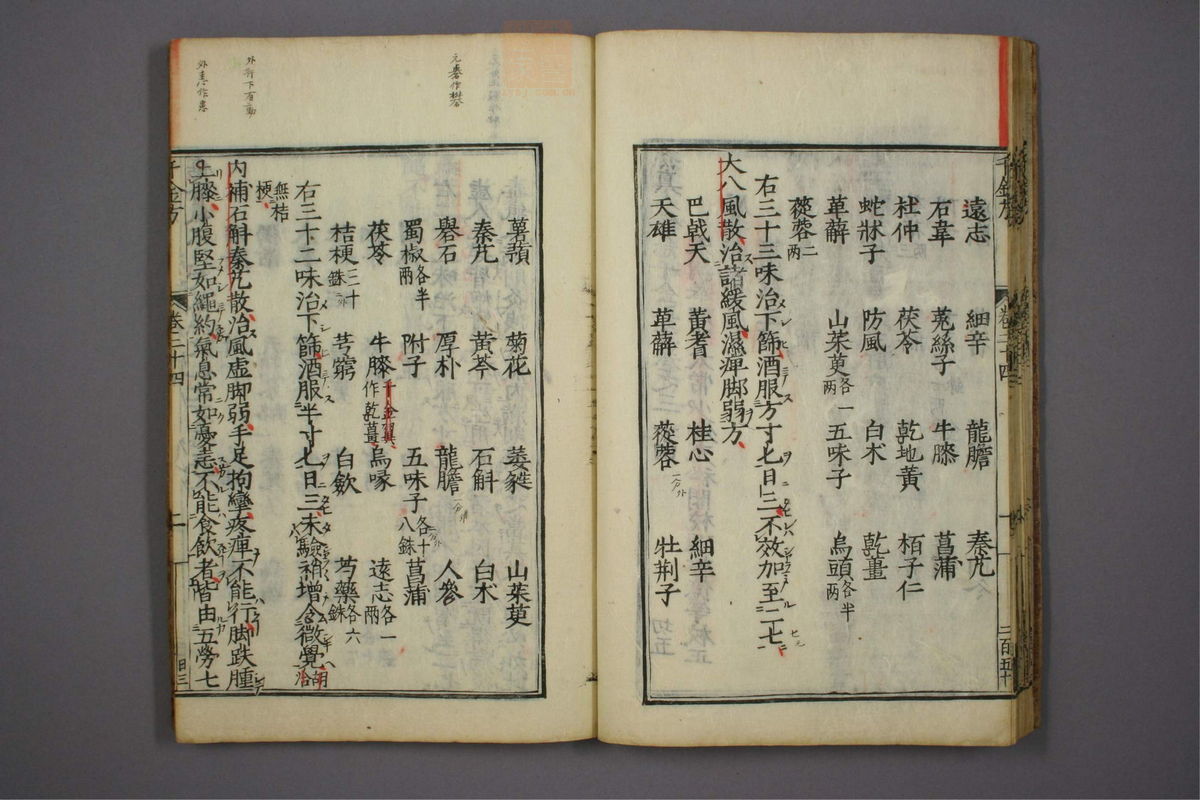 遠志 細辛 龍膽 秦艽
石韋 菟絲子 牛膝 菖蒲
杜仲 茯苓 乾地黃 栢子仁
蛇牀子 防風 白朮 乾薑
萆薢 山茱萸各一兩 五味子 烏頭各半兩
蓯蓉二兩
右三十三味治下篩酒服方寸匕日三不效加至二匕
大八風散治諸緩風濕痺脚弱方
巴戟天 黃耆 桂心 細辛
天雄 萆薢 蓯蓉 牡荊子
千金方
卷二十四
二百五十
元礬作礜
外衍下有動
菊花 萎蕤 山茱萸
秦艽 黃芩 石斛 白朮
礜石 厚朴 龍膽 人參
蜀椒各半兩 附子 五味子各十八銖 菖蒲
茯苓 牛膝千金翼作乾薑 烏喙 遠志各一兩
桔梗三十銖 芎藭 白斂 芍藥各六銖
右三十二味治下篩酒服半寸匕日三未驗稍增令微覺
無桔梗
內補石斛秦艽散治風虛脚弱手足拘攣疼痺不能行脚趺腫
上膝小腹堅如繩約氣息常如憂恚不能食飲者皆由五勞七
千金方
卷二十四